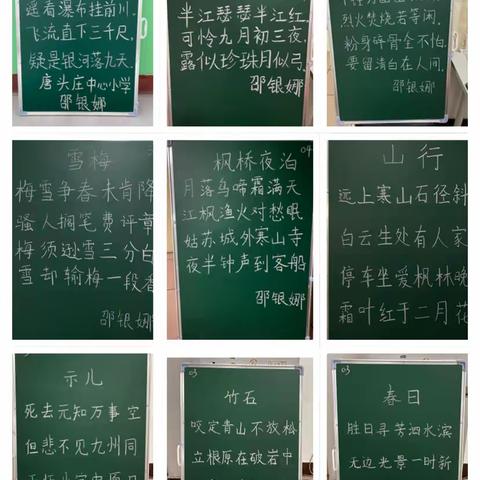 遥看瀑布挂前川,
飞流直下三千尺,
疑是银河落九天.
唐头庄中心小学
邵银娜
半江瑟瑟半江红.
可怜九月初三夜,
露似珍珠月似弓.
邵银娜
烈火焚烧若等闲.
粉身碎骨全不怕,
要留清白在人间.
邵银娜
雪梅
梅雪争春未肯降
骚人搁笔费评章
梅须逊雪三分白
雪却输梅一段香
邵银娜
04
枫桥夜泊
月落乌啼霜满天
江枫渔火对愁眠
姑苏城外寒山寺
夜半钟声到客船
邵银娜
山行
远上寒山石径斜
白云生处有人家
停车坐爱枫林晚
霜叶红于二月花
示儿
死去元知万事空
但悲不见九州同
03
竹石
咬定青山不放松
立根原在破岩中
03
春日
胜日寻芳泗水滨
无边光景一时新